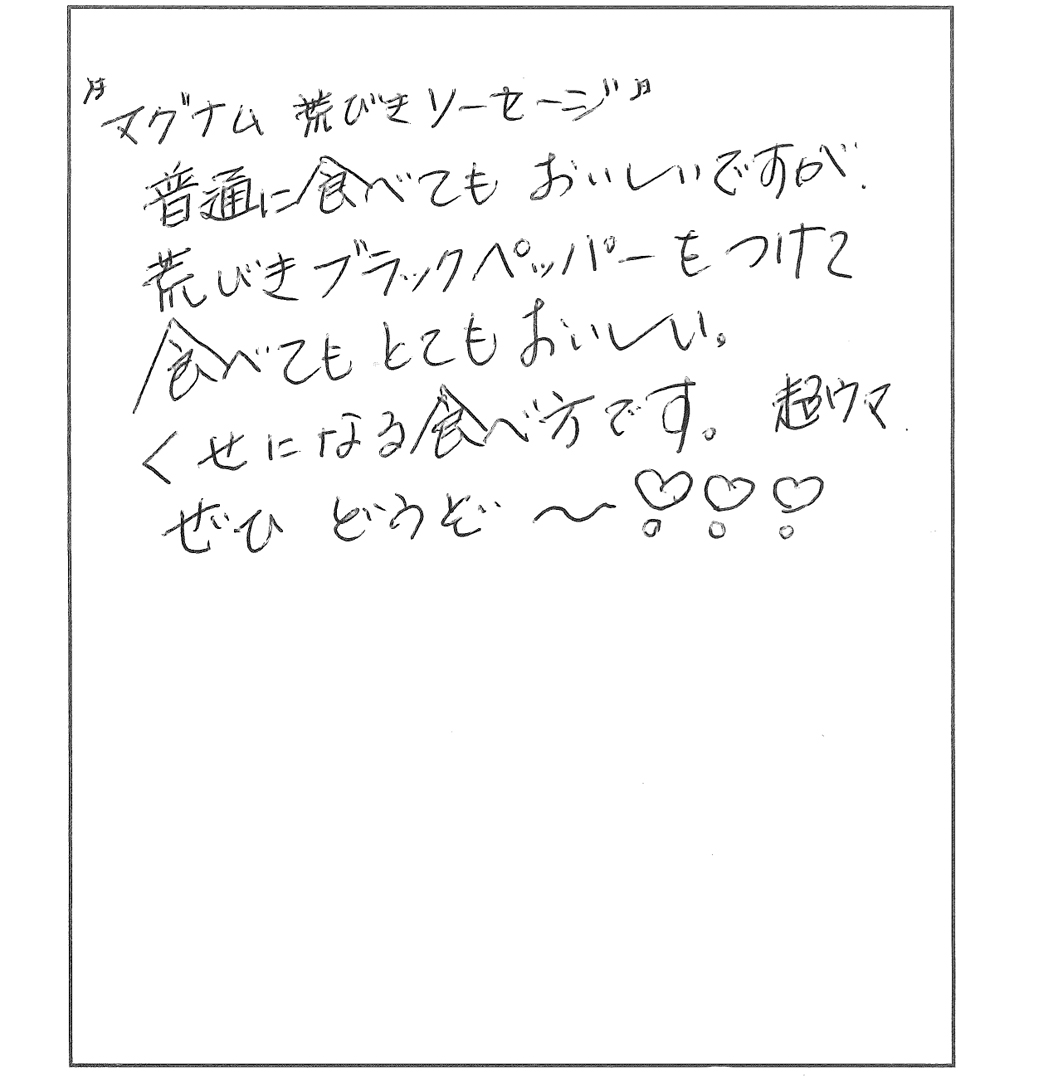 "マグナム 荒びきソーセージ"
普通に食べても おいしいですが、
荒びきブラックペッパーをつけて
食べてもとてもおいしい。
くせになる食べ方です。 超ウマ
ぜひ どうぞ 〜♡♡♡